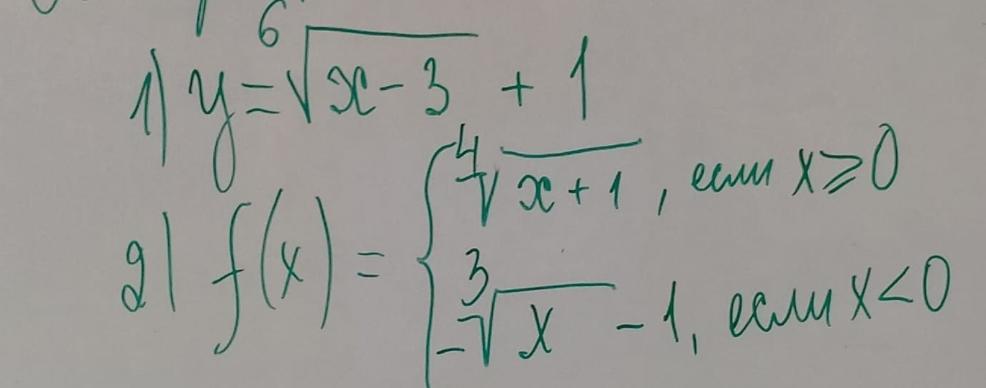 1) y = ⁶√(x-3) + 1
2) f(x) = { ⁴√(x+1), если x ⩾ 0
-³√x - 1, если x < 0